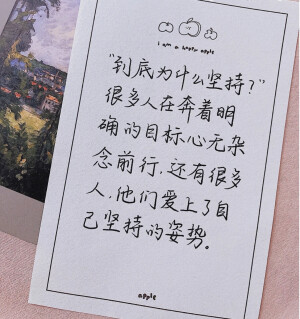 i am a happy apple
“到底为什么坚持?”
很多人在奔着明
确的目标心无杂
念前行,还有很多
人,他们爱上了自
己坚持的姿势。
apple